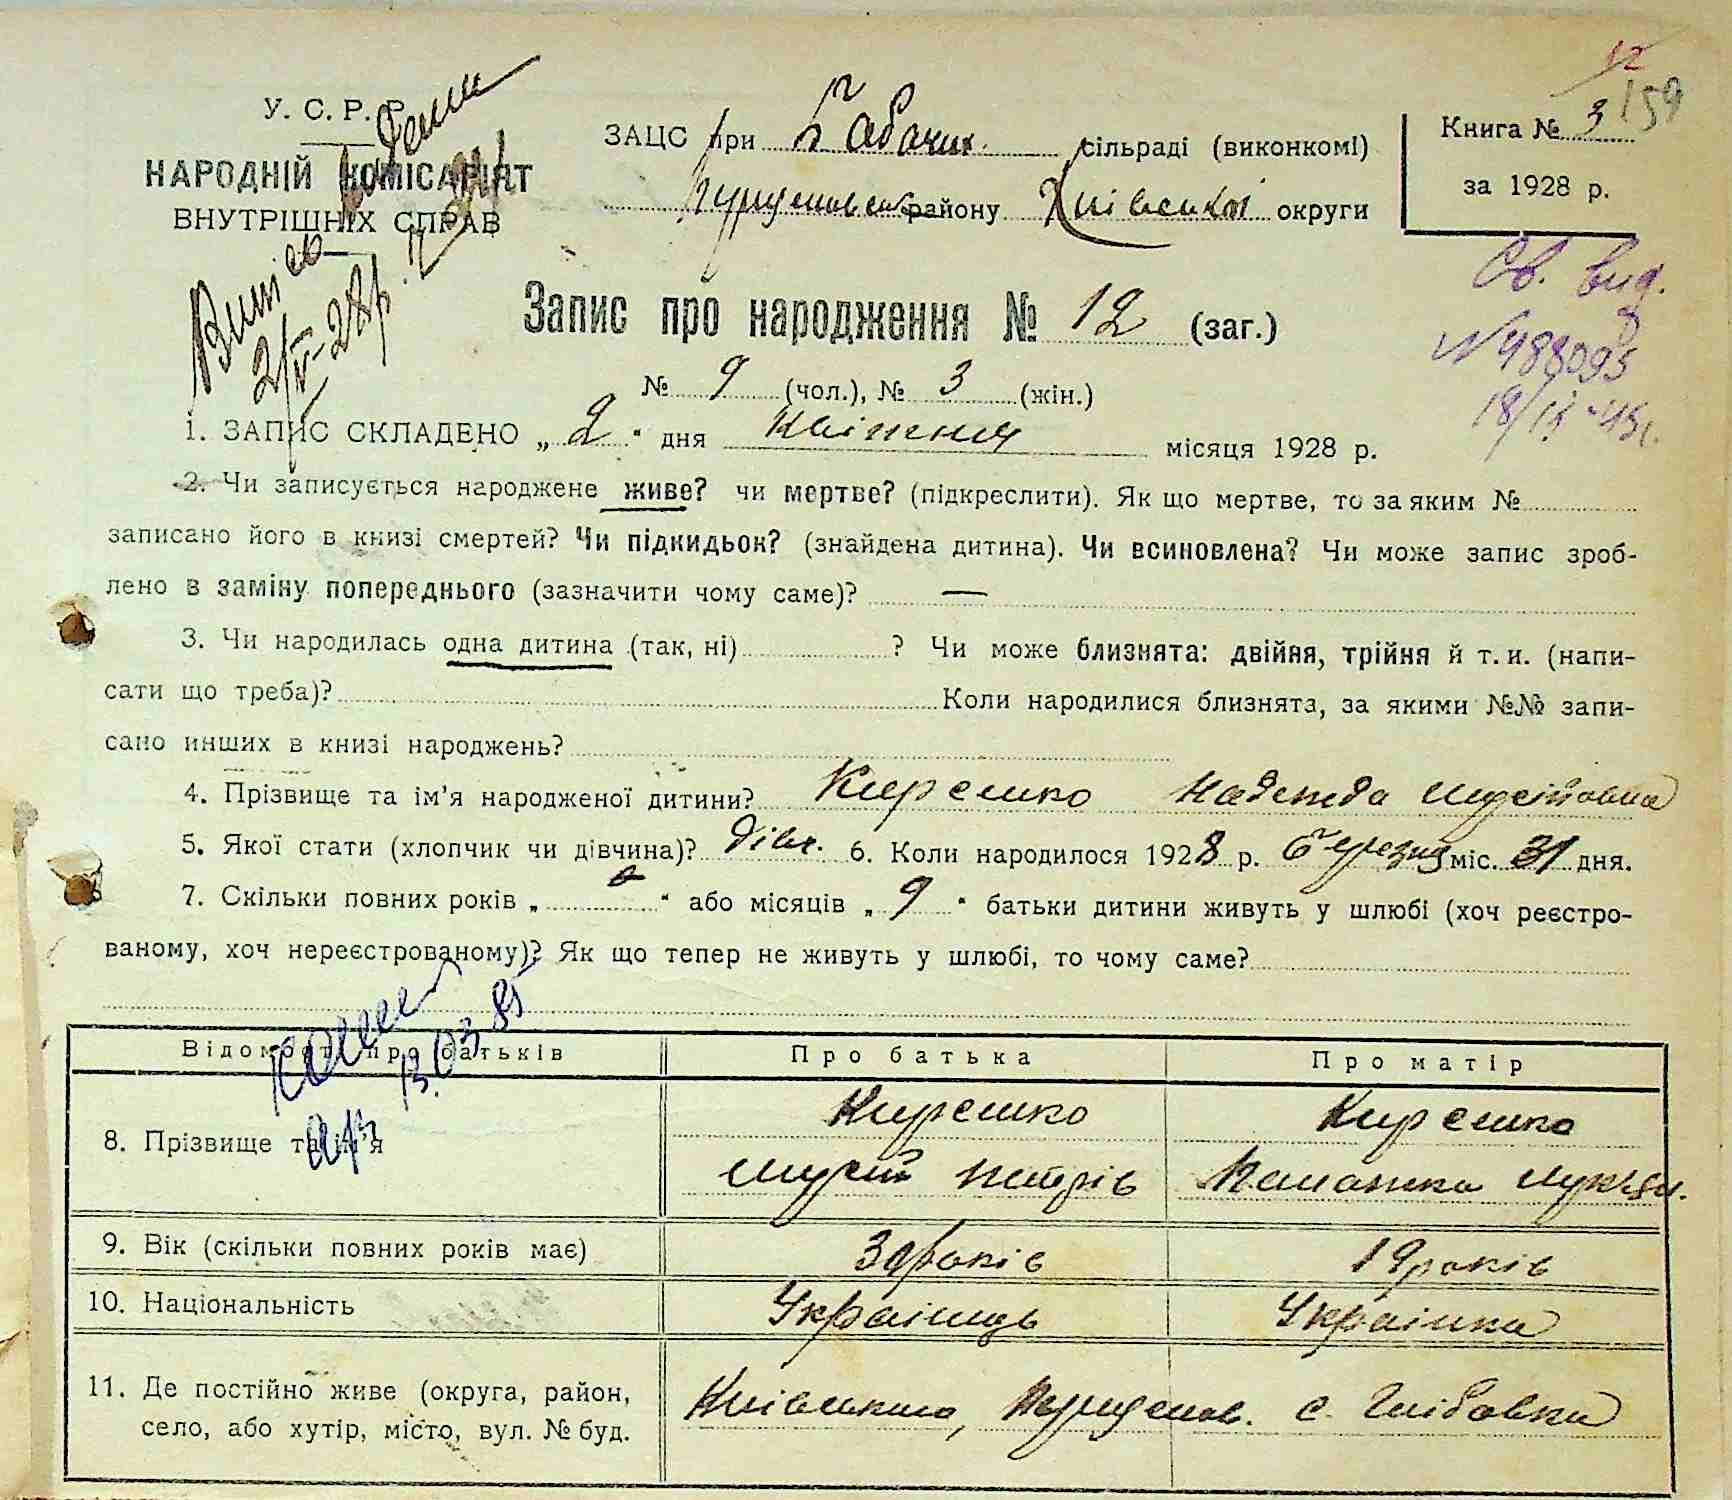 12
159
У. С. Р. Р.
НАРОДНІЙ КОМІСАРІЯТ
ВНУТРІШНІХ СПРАВ
ЗАЦС при сільраді (виконкомі)
району Київської округи
Книга № 3
за 1928 р.
Запис про народження № 12 (заг.)
Св. вид.
N 488095
№ 9 (чол.), № 3 (жін.)
1. ЗАПИС СКЛАДЕНО „ 2 “ дня Квітня місяця 1928 р.
2. Чи записується народжене живе? чи мертве? (підкреслити). Як що мертве, то за яким №
записано його в книзі смертей? Чи підкидьок? (знайдена дитина). Чи всиновлена? Чи може запис зроб-
лено в заміну попереднього (зазначити чому саме)? —
3. Чи народилась одна дитина (так, ні) ? Чи може близнята: двійня, трійня й т. и. (напи-
сати що треба)? Коли народилися близнята, за якими №№ запи-
сано инших в книзі народжень?
4. Прізвище та ім’я народженої дитини? Кирешко Надежда Мусіївна
5. Якої стати (хлопчик чи дівчина)? Дівч. 6. Коли народилося 1928 р. березня міс. 31 дня.
7. Скільки повних років „ “ або місяців „ 9 “ батьки дитини живуть у шлюбі (хоч реєстро-
ваному, хоч нереєстрованому)? Як що тепер не живуть у шлюбі, то чому саме?
13.03.85
Відомості про батьків Про батька Про матір
8. Прізвище та ім’я Кирешко Кирешко
Мусій Петрів Мукіян.
9. Вік (скільки повних років має) років 19 років
10. Національність Українець Українка
11. Де постійно живе (округа, район,
село, або хутір, місто, вул. № буд.
с. Глібовка